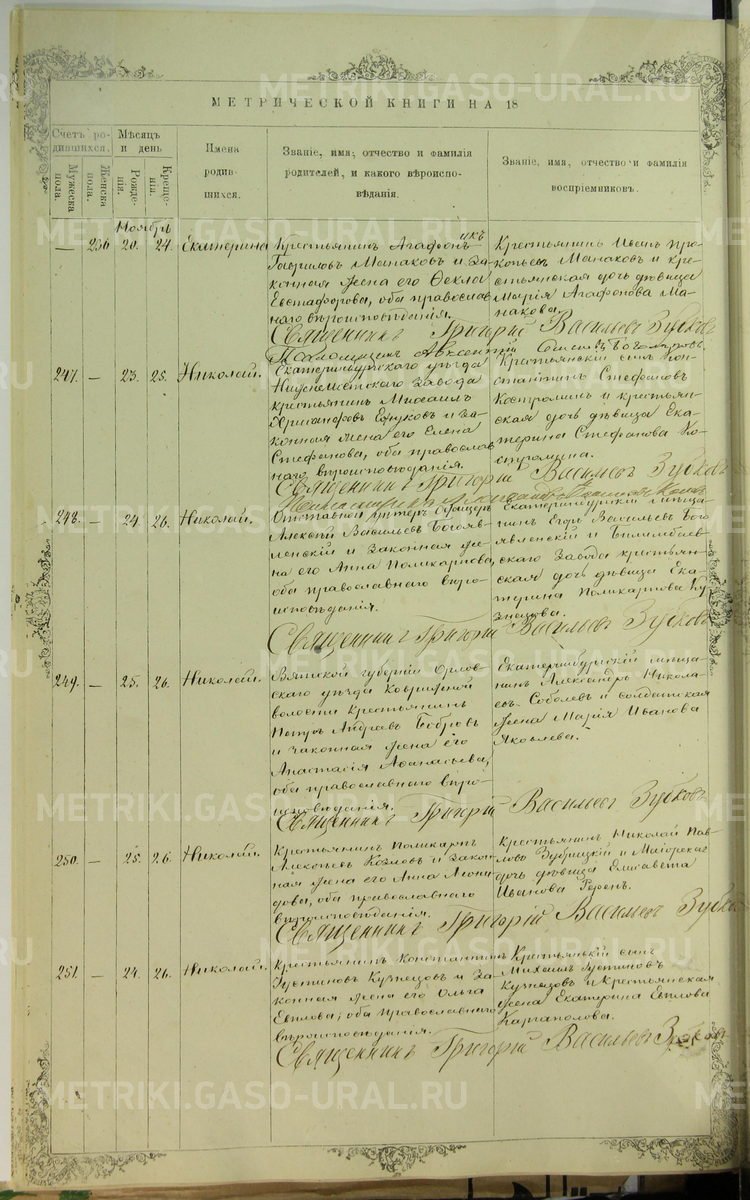 МЕТРИЧЕСКОЙ КНИГИ НА 18
Счетъ ро-
дившихся.
Мужеска
пола.
Женска
пола.
Мѣсяцъ
и день
Рожде-
нія.
Креще-
нія.
Имена
родив-
шихся.
Званіе, имя, отчество и фамилія
родителей, и какого вѣроиспо-
вѣданія.
Званіе, имя, отчество и фамилія
воспріемниковъ.
Ноябрь
— 236 20. 24. Екатерина
Крестьянинъ Агафонъ
Гавриловъ Манаковъ и за-
конная жена его Ѳекла
Евстафорова, оба православ
наго вѣроисповѣданія.
Крестьянинъ Иванъ Про-
копьевъ Манаковъ и кре-
стьянская дочь дѣвица
Марія Агафонова Ма-
накова.
Священникъ Григорій Васильевъ Зубковъ
247. — 23. 25. Николай.
Екатеринбургскаго уѣзда
завода
крестьянинъ Михаилъ
и за-
конная жена его Елена
Стефанова, оба православ
наго вѣроисповѣданія.
Крестьянскій сынъ Кон-
стантинъ Стефановъ
Костроминъ и крестьян-
ская дочь дѣвица Ека-
терина Стефанова Ко-
стромина.
Священникъ Григорій Васильевъ Зубковъ
248. — 24. 26. Николай.
Отставной унтеръ офицеръ
Алексѣй Васильевъ Богояв-
ленскій и законная же-
на его Анна Поликарпова,
оба православнаго вѣро-
исповѣданія.
Екатеринбургскій мѣща-
нинъ Егоръ Васильевъ Бого
явленскій и Билимбаев-
скаго Завода крестьян-
ская дочь дѣвица Ека-
терина Поликарпова
Священникъ Григорій Васильевъ Зубковъ
249. — 25. 26. Николай.
Вятской губерніи Орлов-
скаго уѣзда
волости крестьянинъ
Петръ Бобровъ
и законная жена его
Анастасія Аѳанасьева,
оба православнаго вѣро-
исповѣданія.
Екатеринбургскій мѣща-
нинъ Александръ Никола-
евъ Соболевъ и солдатская
жена Марія Иванова
Яковлева.
Священникъ Григорій Васильевъ Зубковъ
250. — 25. 26. Николай.
Крестьянинъ Поликарпъ
Алексѣевъ Козловъ и закон
ная жена его Анна Леони-
дова, оба православнаго
вѣроисповѣданія.
Крестьянинъ Николай Пав-
ловъ Зубрицкій и Майорская
дочь дѣвица Елисавета
Иванова
Священникъ Григорій Васильевъ Зубковъ
251. — 24. 26. Николай.
Крестьянинъ Константинъ
Устиновъ Кузнецовъ и за-
конная жена его Ольга
Евплова; оба православнаго
вѣроисповѣданія.
Крестьянскій сынъ
Михаилъ Устиновъ
Кузнецовъ и крестьянская
жена Екатерина Евплова
Каргаполова.
Священникъ Григорій Васильевъ Зубковъ
METRIKI.GASO-URAL.RU